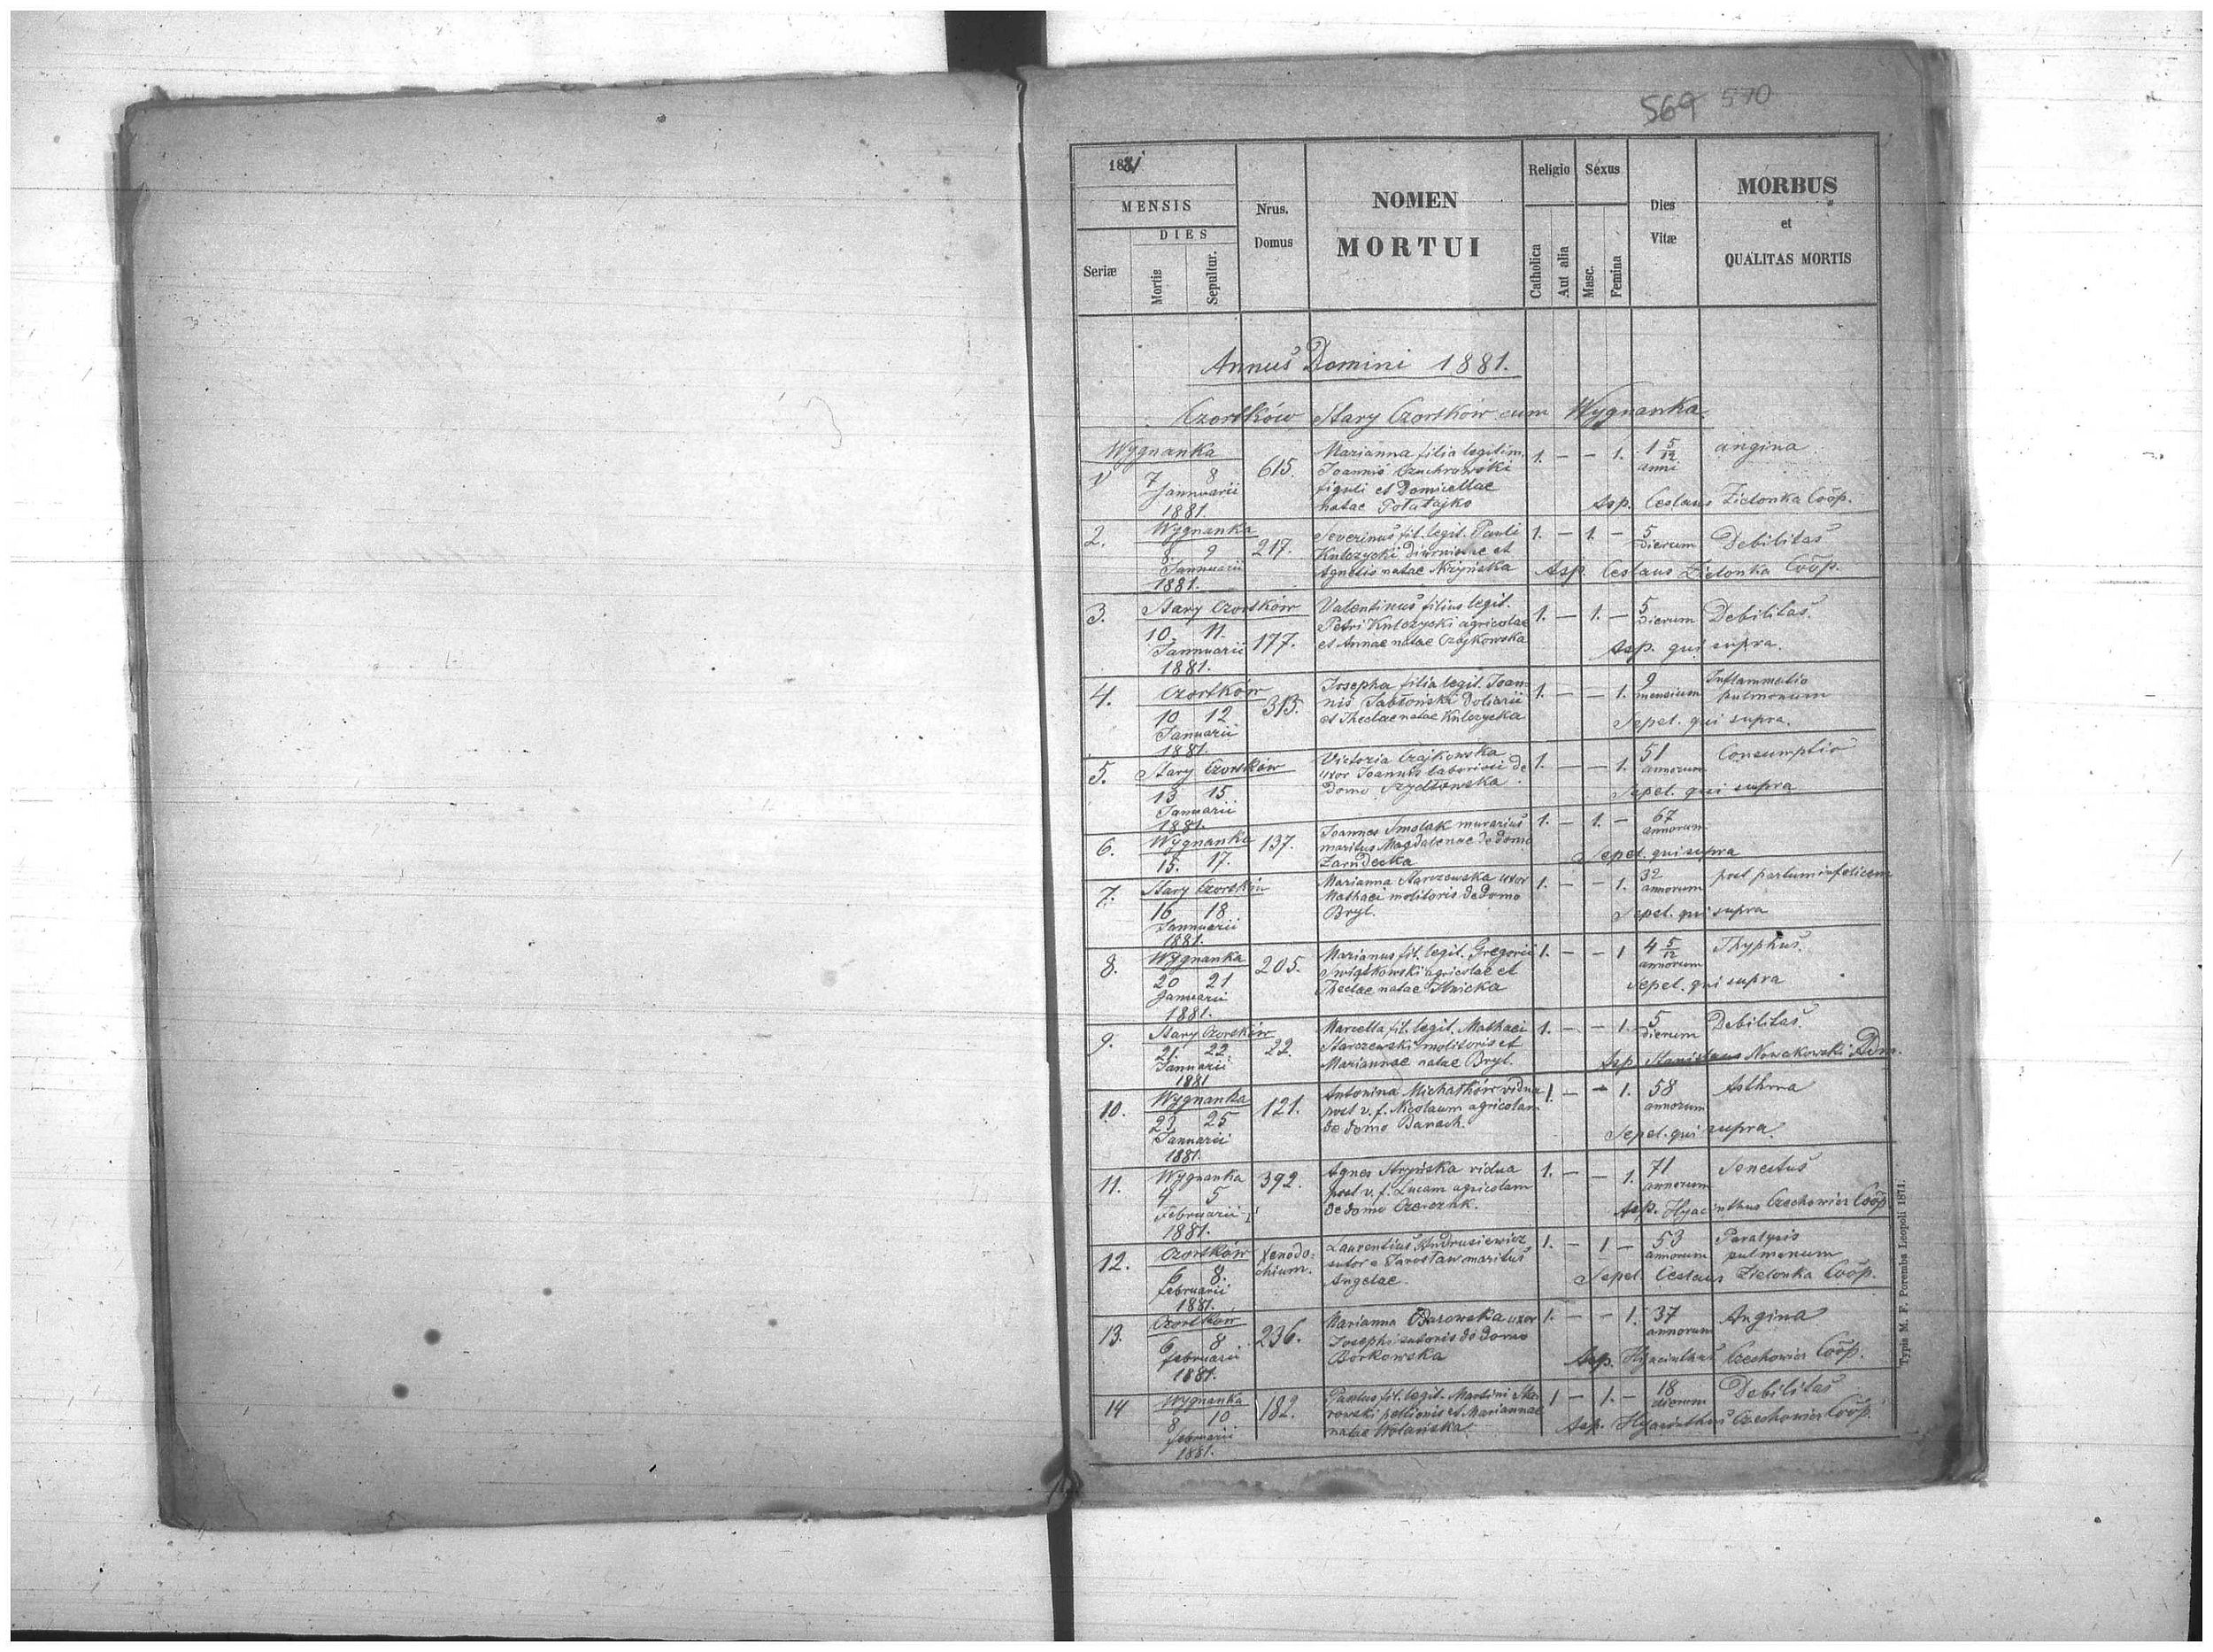 569 570
1881
MENSIS
DIES
Seriæ
Mortis
Sepultur.
Nrus.
Domus
NOMEN
MORTUI
Religio
Catholica
Aut alia
Sexus
Masc.
Femina
Dies
Vitæ
MORBUS
et
QUALITAS MORTIS
Annus Domini 1881.
Czortków Stary Czortków cum Wygnanka.
Wygnanka
1 7 8 615. Marianna filia legitim. 1. — — 1. 1 5/12 angina
Januarii Joannis Czuchrowski anni
1881. figuli et Domicellae
natae Połatajko Asp. Ceslaus Zielonka Coop.
2. Wygnanka Severinus fil. legit. Pauli 1. — 1. — 5 Debilitas
8. 9 217. Kulczycki diurnistae et dierum
Januarii Agnetis natae Asp. Ceslaus Zielonka Coop.
1881.
3. Stary Czortków Valentinus filius legit. 1. — 1. — 5 Debilitas.
10. 11. 177. Petri Kulczycki agricolae dierum
Januarii et Annae natae Czajkowska Asp. qui supra.
1881.
4. Czortków Josepha filia legit. Joan- 1. — — 1. 9 Inflammatio
10 12 315. nis Jabłoński doliarii mensium pulmonum
Januarii et Theclae natae Kulczycka Sepel. qui supra.
1881.
5. Stary Czortków Victoria Czajkowska 1. — — 1. 51 Consumptio
13 15 uxor Joannis laboriosi de annorum
Januarii domo Szydłowska. Sepel. qui supra
1881.
6. Wygnanka 137. Joannes Smolak murarius 1. — 1. — 67
15. 17. maritus Magdalenae de domo annorum
Zarudecka Sepel. qui supra
7. Stary Czortków Marianna Starczewska uxor 1. — — 1. 32 post partum infelicem
16 18 Mathaei molitoris de domo annorum
Januarii Bryl. Sepel. qui supra
1881.
8. Wygnanka 205. Marianus fil. legit. Gregorii 1. — — 1 4 5/12 Thyphus.
20 21 agricolae et annorum
Januarii Theclae natae Sepel. qui supra
1881.
9. Stary Czortków Marcella fil. legit. Mathaei 1. — — 1. 5 Debilitas
21. 22. 22. Starczewski molitoris et dierum
Januarii Mariannae natae Bryl. Asp. Stanislaus Nowakowski Adm.
1881
10. Wygnanka 121. Antonina Michałków vidua 1. — — 1. 58 Asthma
23 25 post v. f. Nicolaum agricolam annorum
Januarii de domo Banach. Sepel. qui supra.
1881.
11. Wygnanka 392. Agnes vidua 1. — — 1. 71 Senectus
4 5 post v. f. Lucam agricolam annorum
Februarii de domo Asp. Hyacinthus Czechowicz Coop
1881.
12. Czortków Xenodo- Laurentius Andrusiewicz 1. — 1 — 53 Paralysis
6 8. chium. sutor e Jarosław maritus annorum pulmonum
februarii Angelae. Sepel. Ceslaus Zielonka Coop.
1881.
13. Czortków 236. Marianna uxor 1. — — 1. 37 Angina
6 8 Josephi sutoris de domo annorum
februarii Borkowska Asp. Hyacinthus Czechowicz Coop.
1881.
14 Wygnanka 182. Paulus fil. legit. Martini 1 — 1. — 18 Debilitas
8 10 pellionis et Mariannae dierum
februarii natae Wolańska. Asp. Hyacinthus Czechowicz Coop.
1881.
Typis M. F. Poremba Leopoli 1871.